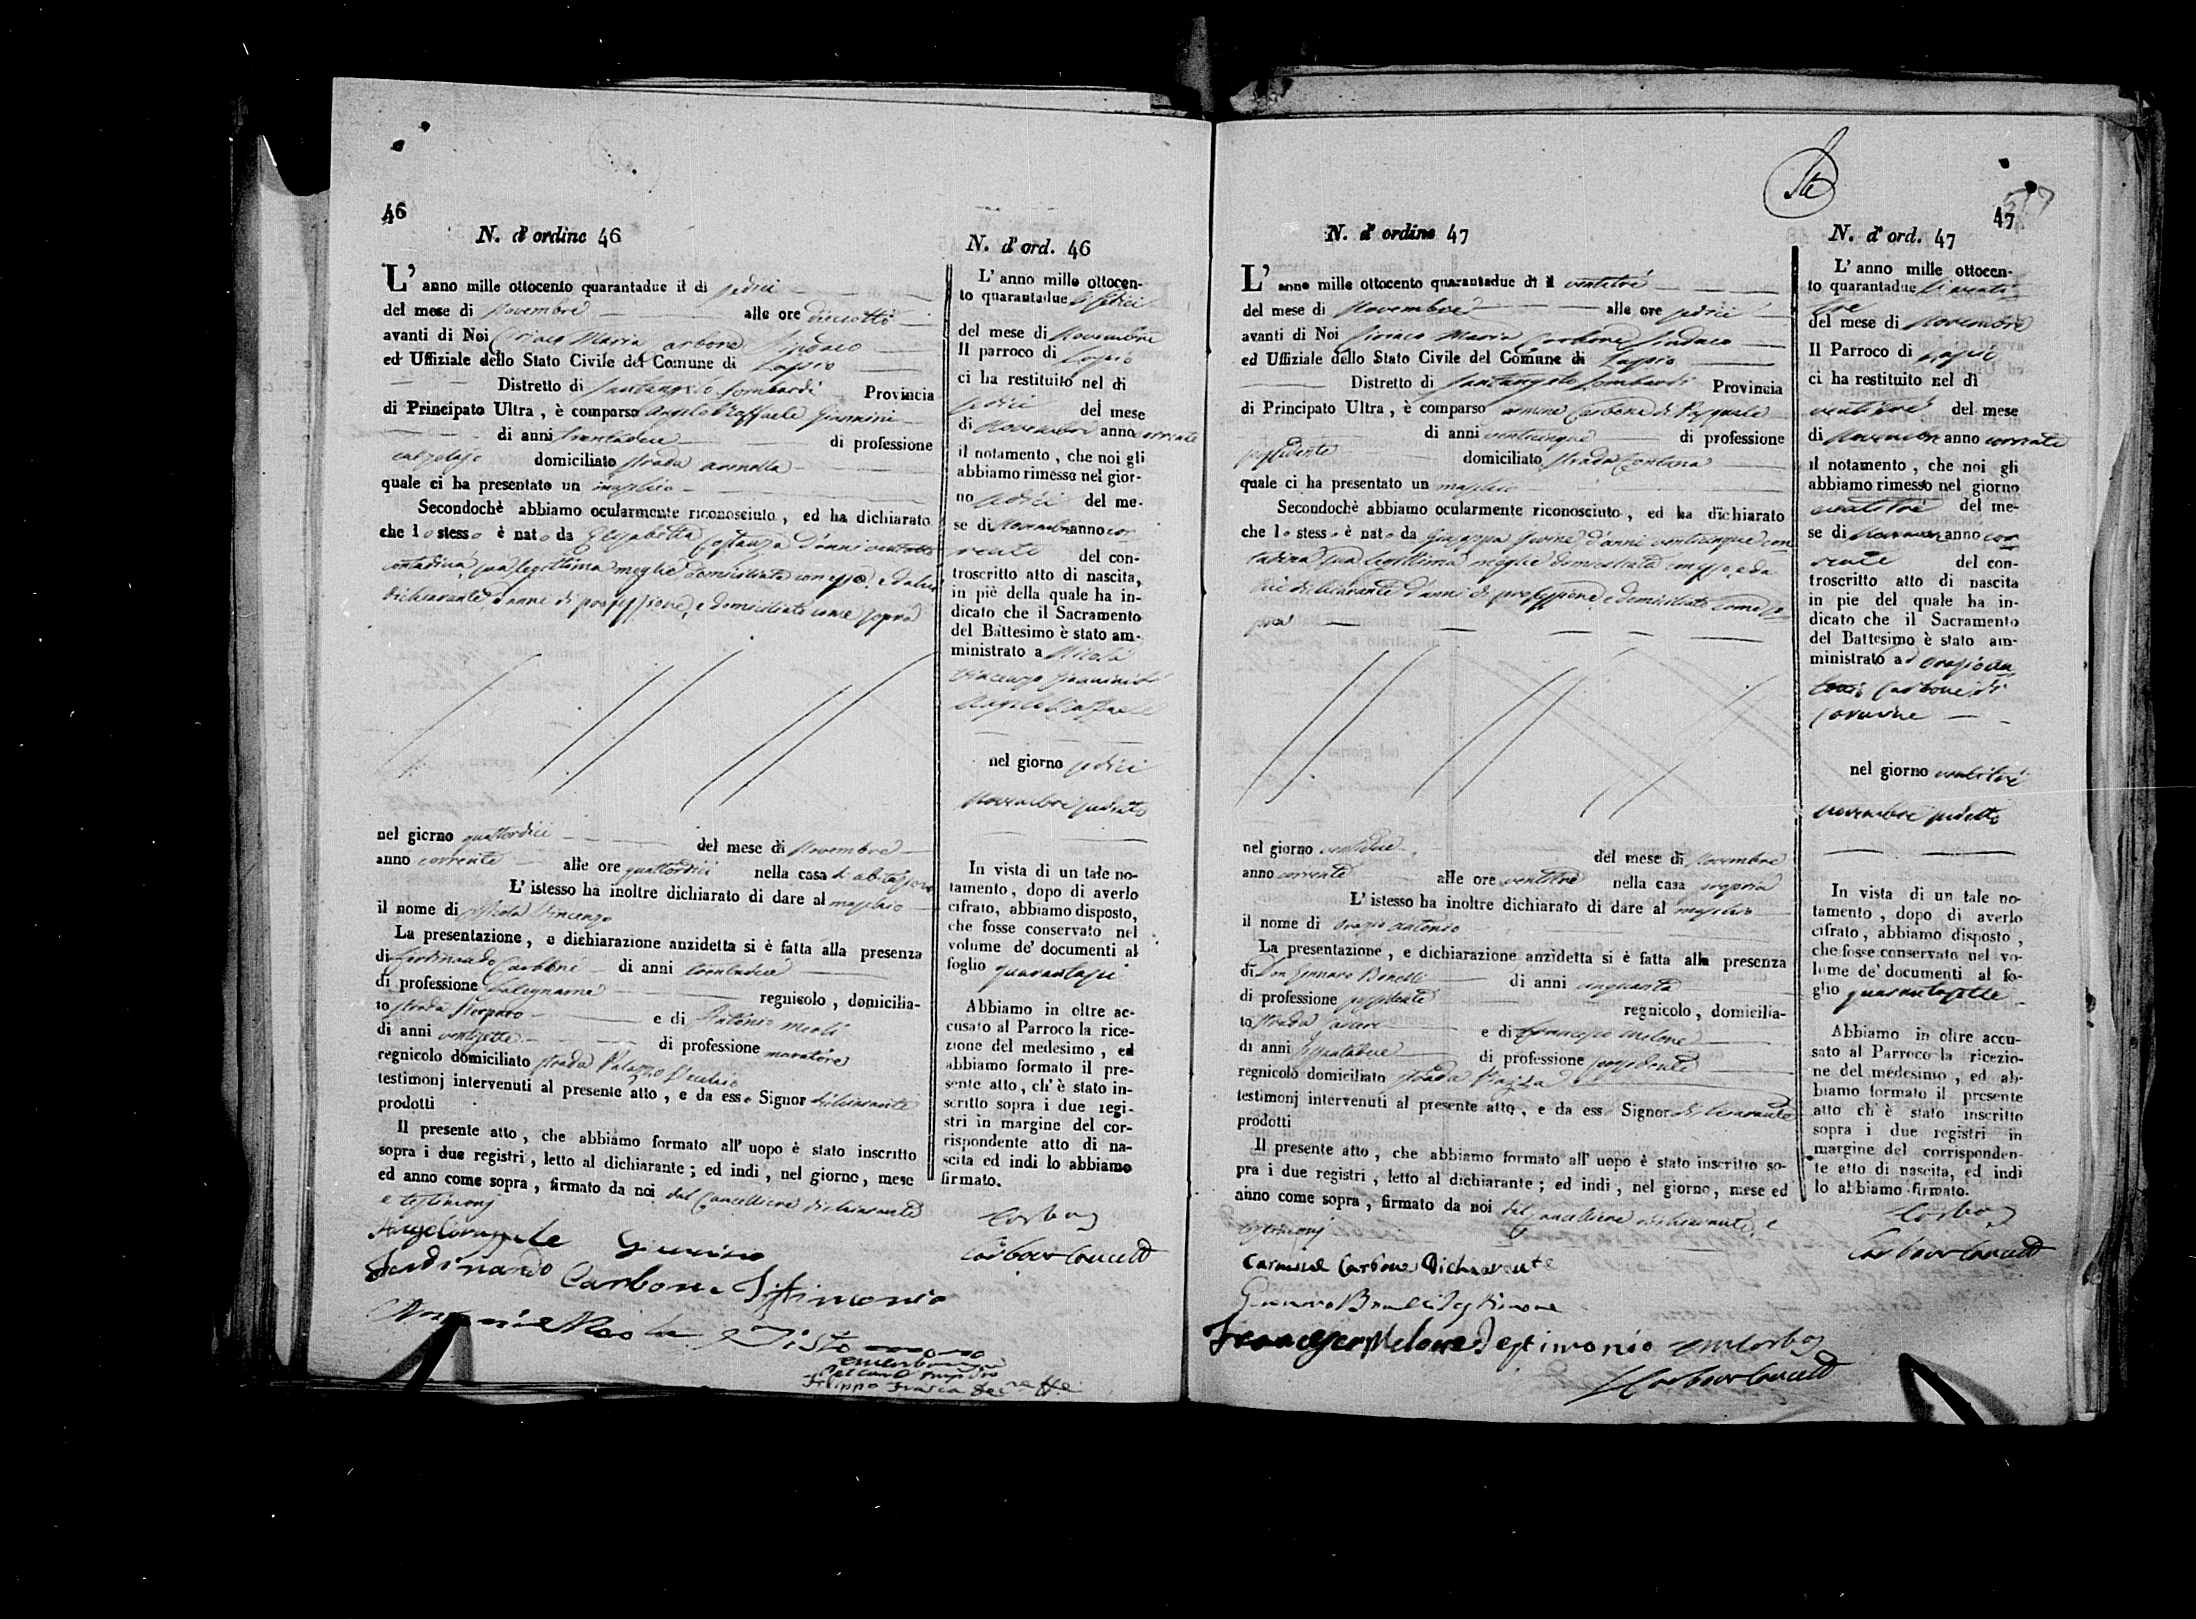 46
N. d'ordine 46
L'anno mille ottocento quarantadue il di sedici
del mese di Novembre alle ore diciotto
avanti di Noi Ciriaco Maria Carbone Sindaco
ed Uffiziale dello Stato Civile del Comune di Lapio
Distretto di Santangelo Lombardi Provincia
di Principato Ultra, è comparso Angelo Raffaele Giannini
di anni trentadue di professione
calzolajo domiciliato strada
quale ci ha presentato un maschio
Secondochè abbiamo ocularmente riconosciuto, ed ha dichiarato
che lo stesso è nato da Elisabetta Costanza d'anni ventotto
contadina sua legittima moglie domiciliata con esso, e da lui
dichiarante d'anni di professione, e domiciliato come sopra
nel giorno quattordici del mese di Novembre
anno corrente alle ore quattordici nella casa di abitazione
L'istesso ha inoltre dichiarato di dare al maschio
il nome di Nicola Vincenzo
La presentazione, e dichiarazione anzidetta si è fatta alla presenza
di Ferdinando Carbone di anni trentadue
di professione falegname regnicolo, domicilia-
to strada e di Antonio Meoli
di anni ventisette di professione muratore
regnicolo domiciliato strada Palazzo Vecchio
testimonj intervenuti al presente atto, e da esso Signor dichiarante
prodotti
Il presente atto, che abbiamo formato all'uopo è stato inscritto
sopra i due registri, letto al dichiarante; ed indi, nel giorno, mese
ed anno come sopra, firmato da noi dal Cancelliere dichiarante
e testimonj
Ferdinando Carbone Testimonio
N. d'ord. 46
L'anno mille ottocen-
to quarantadue li sedici
del mese di Novembre
Il parroco di Lapio
ci ha restituito nel di
sedici del mese
di Novembre anno corrente
il notamento, che noi gli
abbiamo rimesso nel gior-
no sedici del me-
se di Novembre anno cor
rente del con-
troscritto atto di nascita,
in piè della quale ha in-
dicato che il Sacramento
del Battesimo è stato am-
ministrato a Nicola
Vincenzo Giannini di
Angelo Raffaele
nel giorno sedici
Novembre sudetto
In vista di un tale no-
tamento, dopo di averlo
cifrato, abbiamo disposto,
che fosse conservato nel
volume de' documenti al
foglio quarantasei
Abbiamo in oltre ac-
cusato al Parroco la rice-
zione del medesimo, ed
abbiamo formato il pre-
sente atto, ch'è stato in-
scritto sopra i due regi-
stri in margine del cor-
rispondente atto di na-
scita ed indi lo abbiamo
firmato.
47
N. d'ordine 47
L'anno mille ottocento quarantadue di il ventitrè
del mese di Novembre alle ore sedici
avanti di Noi Ciriaco Maria Carbone Sindaco
ed Uffiziale dello Stato Civile del Comune di Lapio
Distretto di Santangelo Lombardi Provincia
di Principato Ultra, è comparso Carmine Carbone di Pasquale
di anni venticinque di professione
possidente domiciliato strada Fontana
quale ci ha presentato un maschio
Secondochè abbiamo ocularmente riconosciuto, ed ha dichiarato
che lo stesso è nato da Giuseppa d'anni venticinque con
tadina sua legittima moglie domiciliata con esso, e da
lui dichiarante d'anni di professione, e domiciliato come so
pra
nel giorno ventidue del mese di Novembre
anno corrente alle ore ventitre nella casa propria
L'istesso ha inoltre dichiarato di dare al maschio
il nome di Orazio Antonio
La presentazione, e dichiarazione anzidetta si è fatta alla presenza
di Don Gennaro Bonelli di anni cinquanta
di professione possidente regnicolo, domicilia-
to strada e di Francesco Melone
di anni di professione possidente
regnicolo domiciliato strada Piazza
testimonj intervenuti al presente atto, e da ess Signor dichiarante
prodotti
Il presente atto, che abbiamo formato all'uopo è stato inscritto so-
pra i due registri, letto al dichiarante; ed indi, nel giorno, mese ed
anno come sopra, firmato da noi dal Cancelliere dichiarante, e
testimonj
Carmine Carbone Dichiarante
Francesco Melone Testimonio
N. d'ord. 47
L'anno mille ottocen-
to quarantadue li venti
tre
del mese di Novembre
Il Parroco di Lapio
ci ha restituito nel dì
ventitrè del mese
di Novembre anno corrente
il notamento, che noi gli
abbiamo rimesso nel giorno
ventitrè del me-
se di Novembre anno cor
rente del con-
troscritto atto di nascita
in pie del quale ha in-
dicato che il Sacramento
del Battesimo è stato am-
ministrato ad Orazio An
tonio Carbone di
Carmine
nel giorno ventitrè
Novembre sudetto
In vista di un tale no-
tamento, dopo di averlo
cifrato, abbiamo disposto,
che fosse conservato nel vo-
lume de' documenti al fo-
glio quarantasette
Abbiamo in oltre accu-
sato al Parroco la ricezio-
ne del medesimo, ed ab-
biamo formato il presente
atto ch'è stato inscritto
sopra i due registri in
margine del corrisponden-
te atto di nascita, ed indi
lo abbiamo firmato.